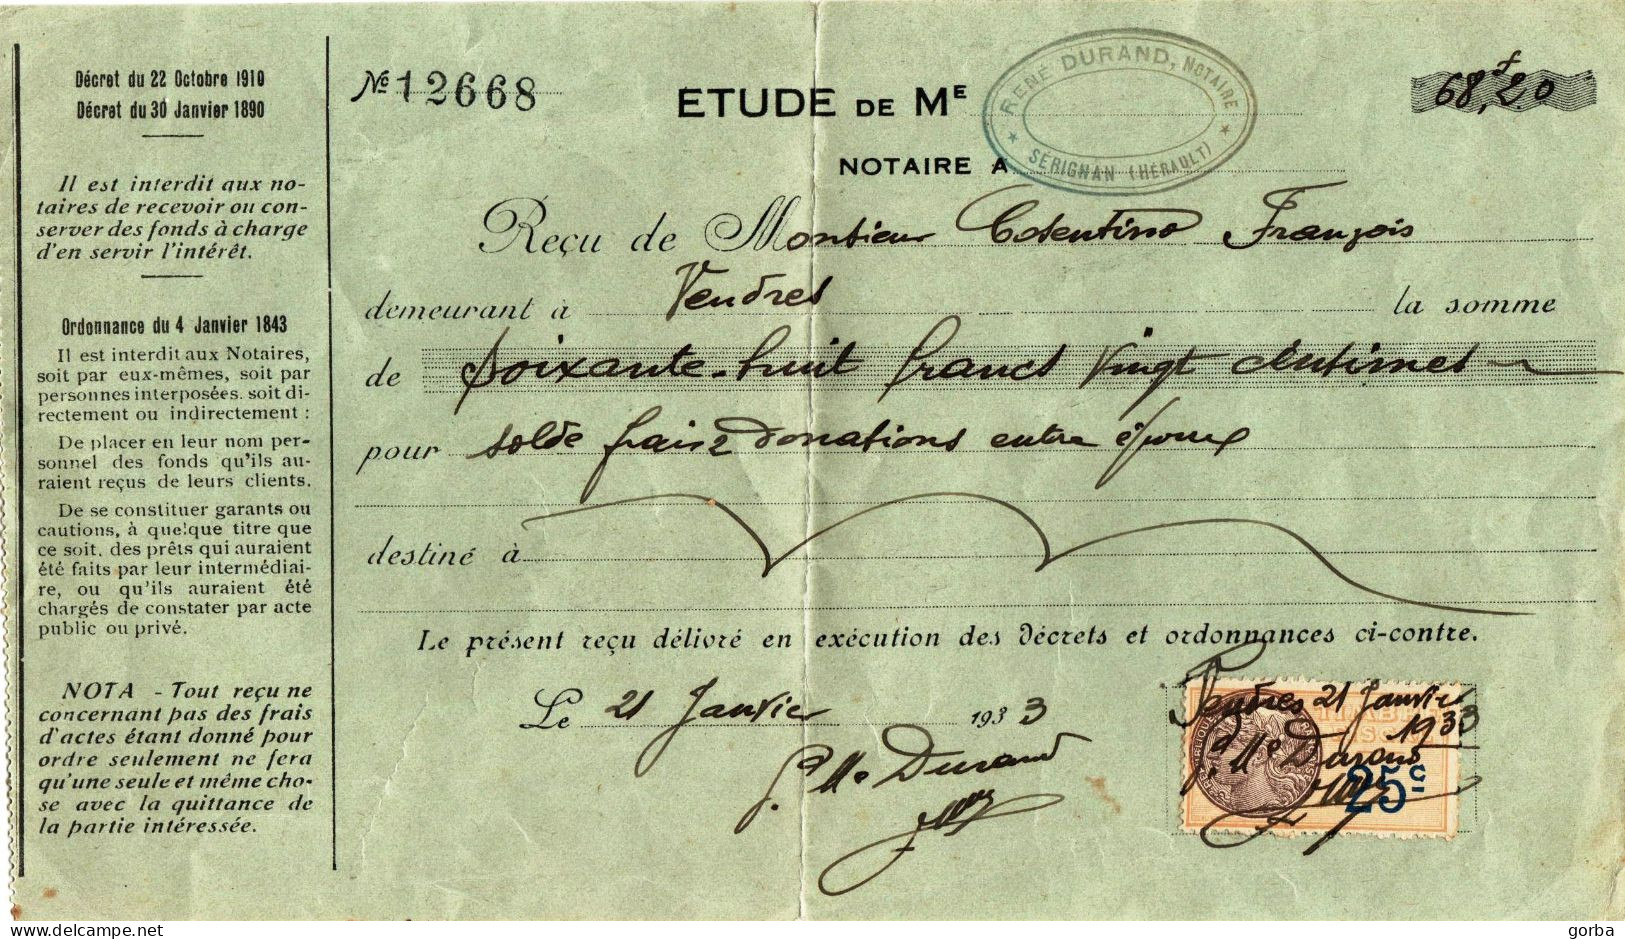 Décret du 22 Octobre 1910
Décret du 30 Janvier 1890
Il est interdit aux no-
taires de recevoir ou con-
server des fonds à charge
d'en servir l'intérêt.
Ordonnance du 4 Janvier 1843
Il est interdit aux Notaires,
soit par eux-mêmes, soit par
personnes interposées. soit di-
rectement ou indirectement :
De placer en leur nom per-
sonnel des fonds qu'ils au-
raient reçus de leurs clients.
De se constituer garants ou
cautions, à quelque titre que
ce soit. des prêts qui auraient
été faits par leur intermédiai-
re, ou qu'ils auraient été
chargés de constater par acte
public ou privé.
NOTA - Tout reçu ne
concernant pas des frais
d'actes étant donné pour
ordre seulement ne fera
qu'une seule et même cho-
se avec la quittance de
la partie intéressée.
No 12668
ETUDE DE ME
RENÉ DURAND, NOTAIRE
SÉRIGNAN (HÉRAULT)
68f,20
NOTAIRE A
Reçu de Monsieur Cosentino François
demeurant à Vendres la somme
de Soixante-huit francs vingt centimes
pour solde frais 2 donations entre époux
destiné à
Le présent reçu délivré en exécution des Décrets et ordonnances ci-contre.
Le 21 Janvier 1933
p. Me Durand
Vendres 21 Janvier
1933
p. Me Durand
25c
delcampe.net
gorba